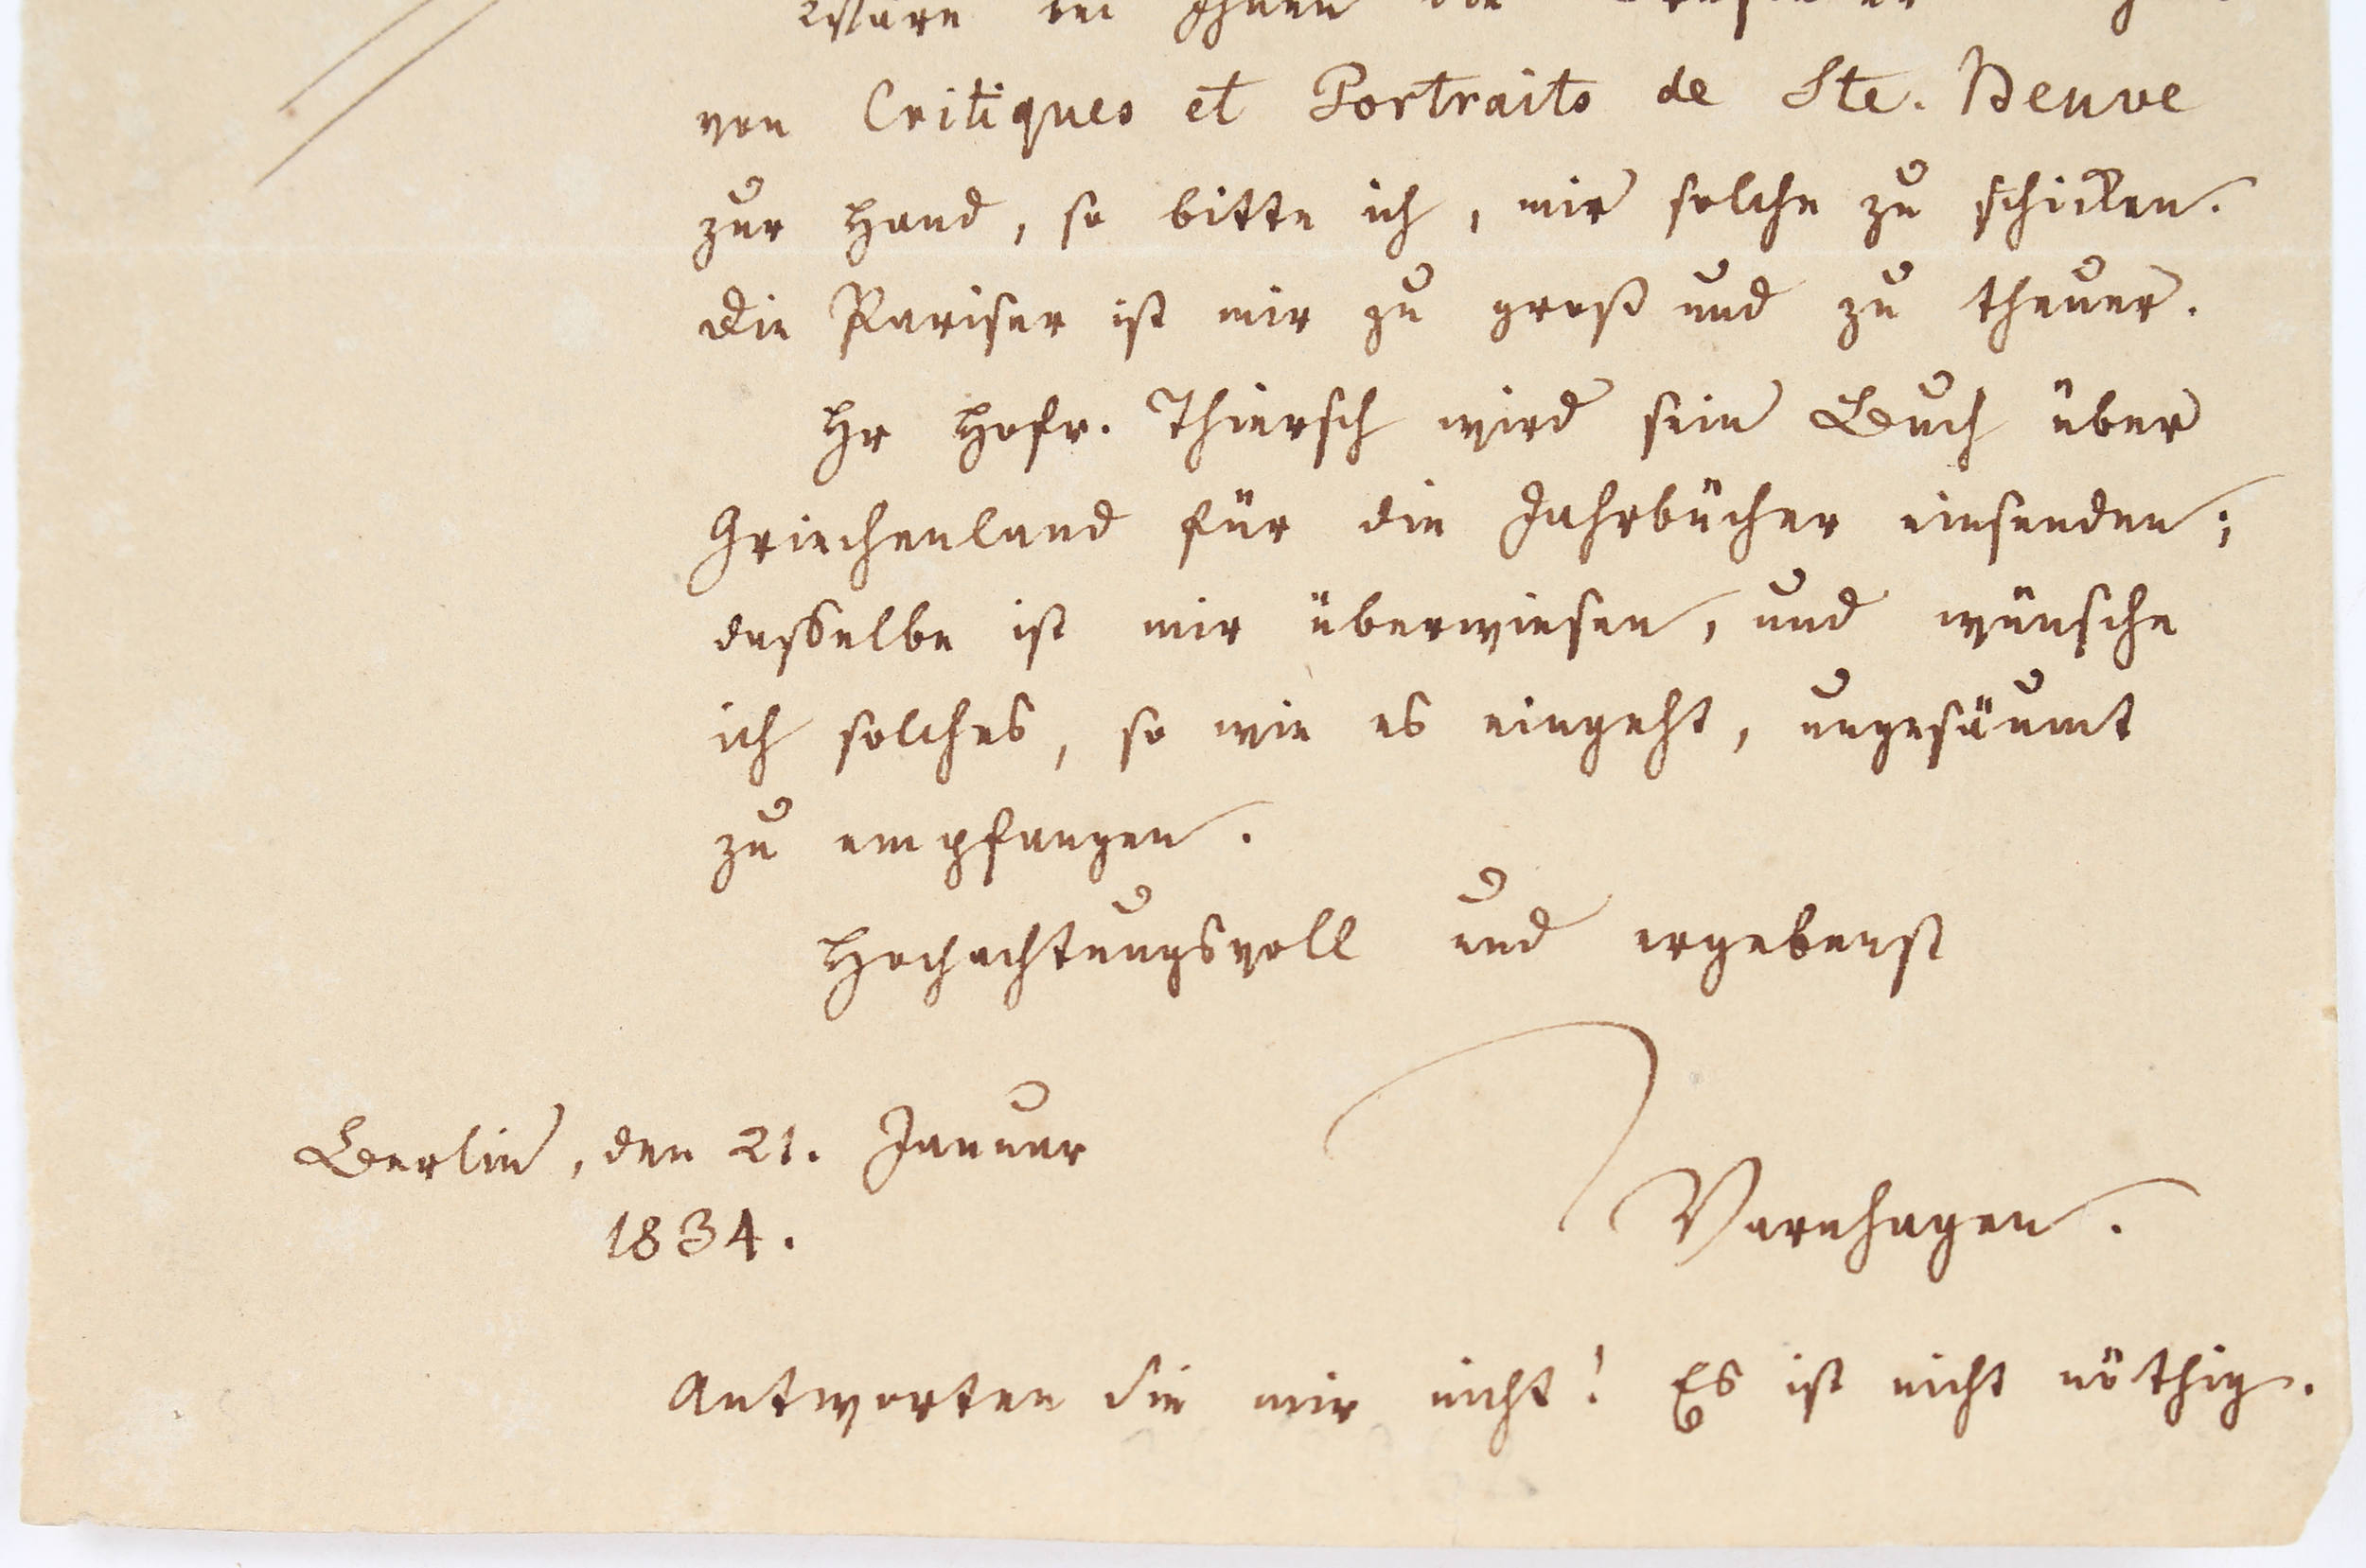 Wäre bei Ihnen die
von Critiques et Portraits de Ste. Beuve
zur Hand, so bitte ich, mir solche zu schicken.
Die Pariser ist mir zu groß und zu theuer.
Hr Hofr. Thiersch wird sein Buch über
Griechenland für die Jahrbücher einsenden;
dasselbe ist mir überwiesen, und wünsche
ich solches, so wie es eingeht, ungesäumt
zu empfangen.
Hochachtungsvoll und ergebenst
Berlin, den 21. Januar
1834.
Varnhagen.
Antworten Sie mir nicht! Es ist nicht nöthig.